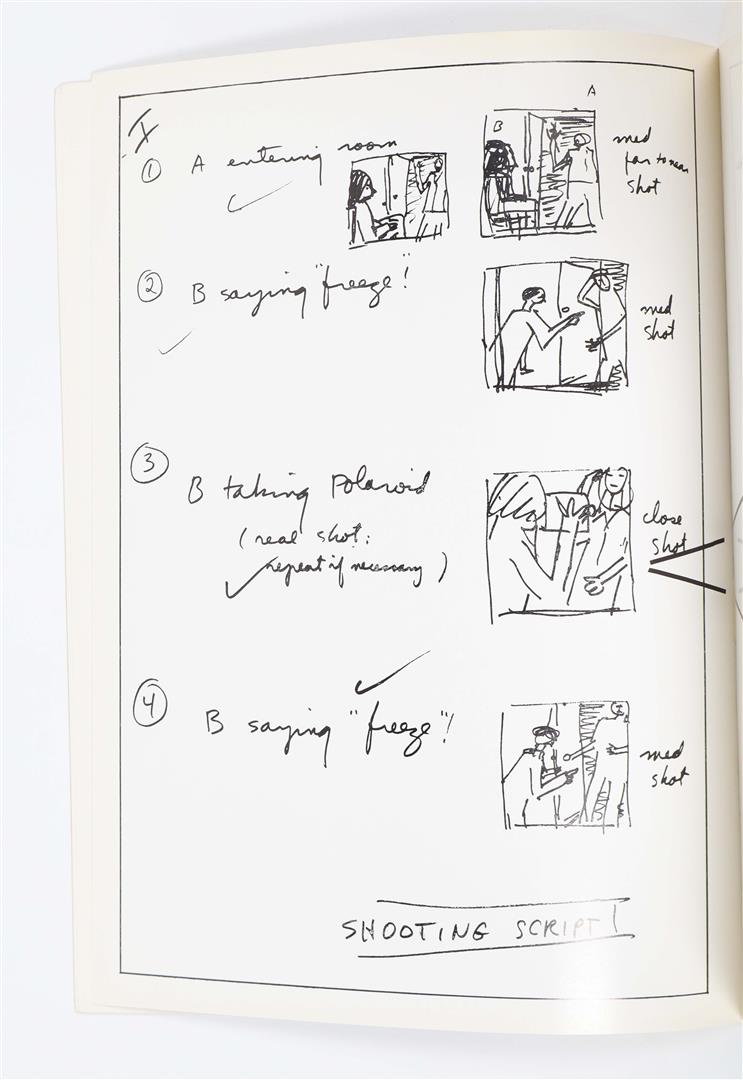 I
A
① A entering room
B
med
far to near
shot
② B saying "freeze!"
med
shot
③ B taking Polaroid
(real shot:
repeat if necessary)
close
shot
④ B saying "freeze"!
med
shot
SHOOTING SCRIPT